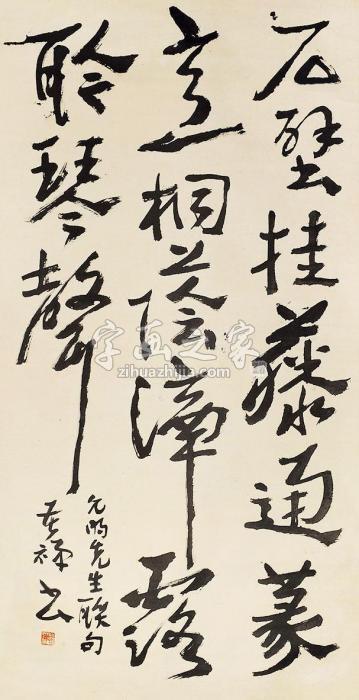 石壁挂藤通篆
意桐蔭滴露
聆琴聲
允明先生聯句
苦禪书
字画之家
zihuazhijia.com